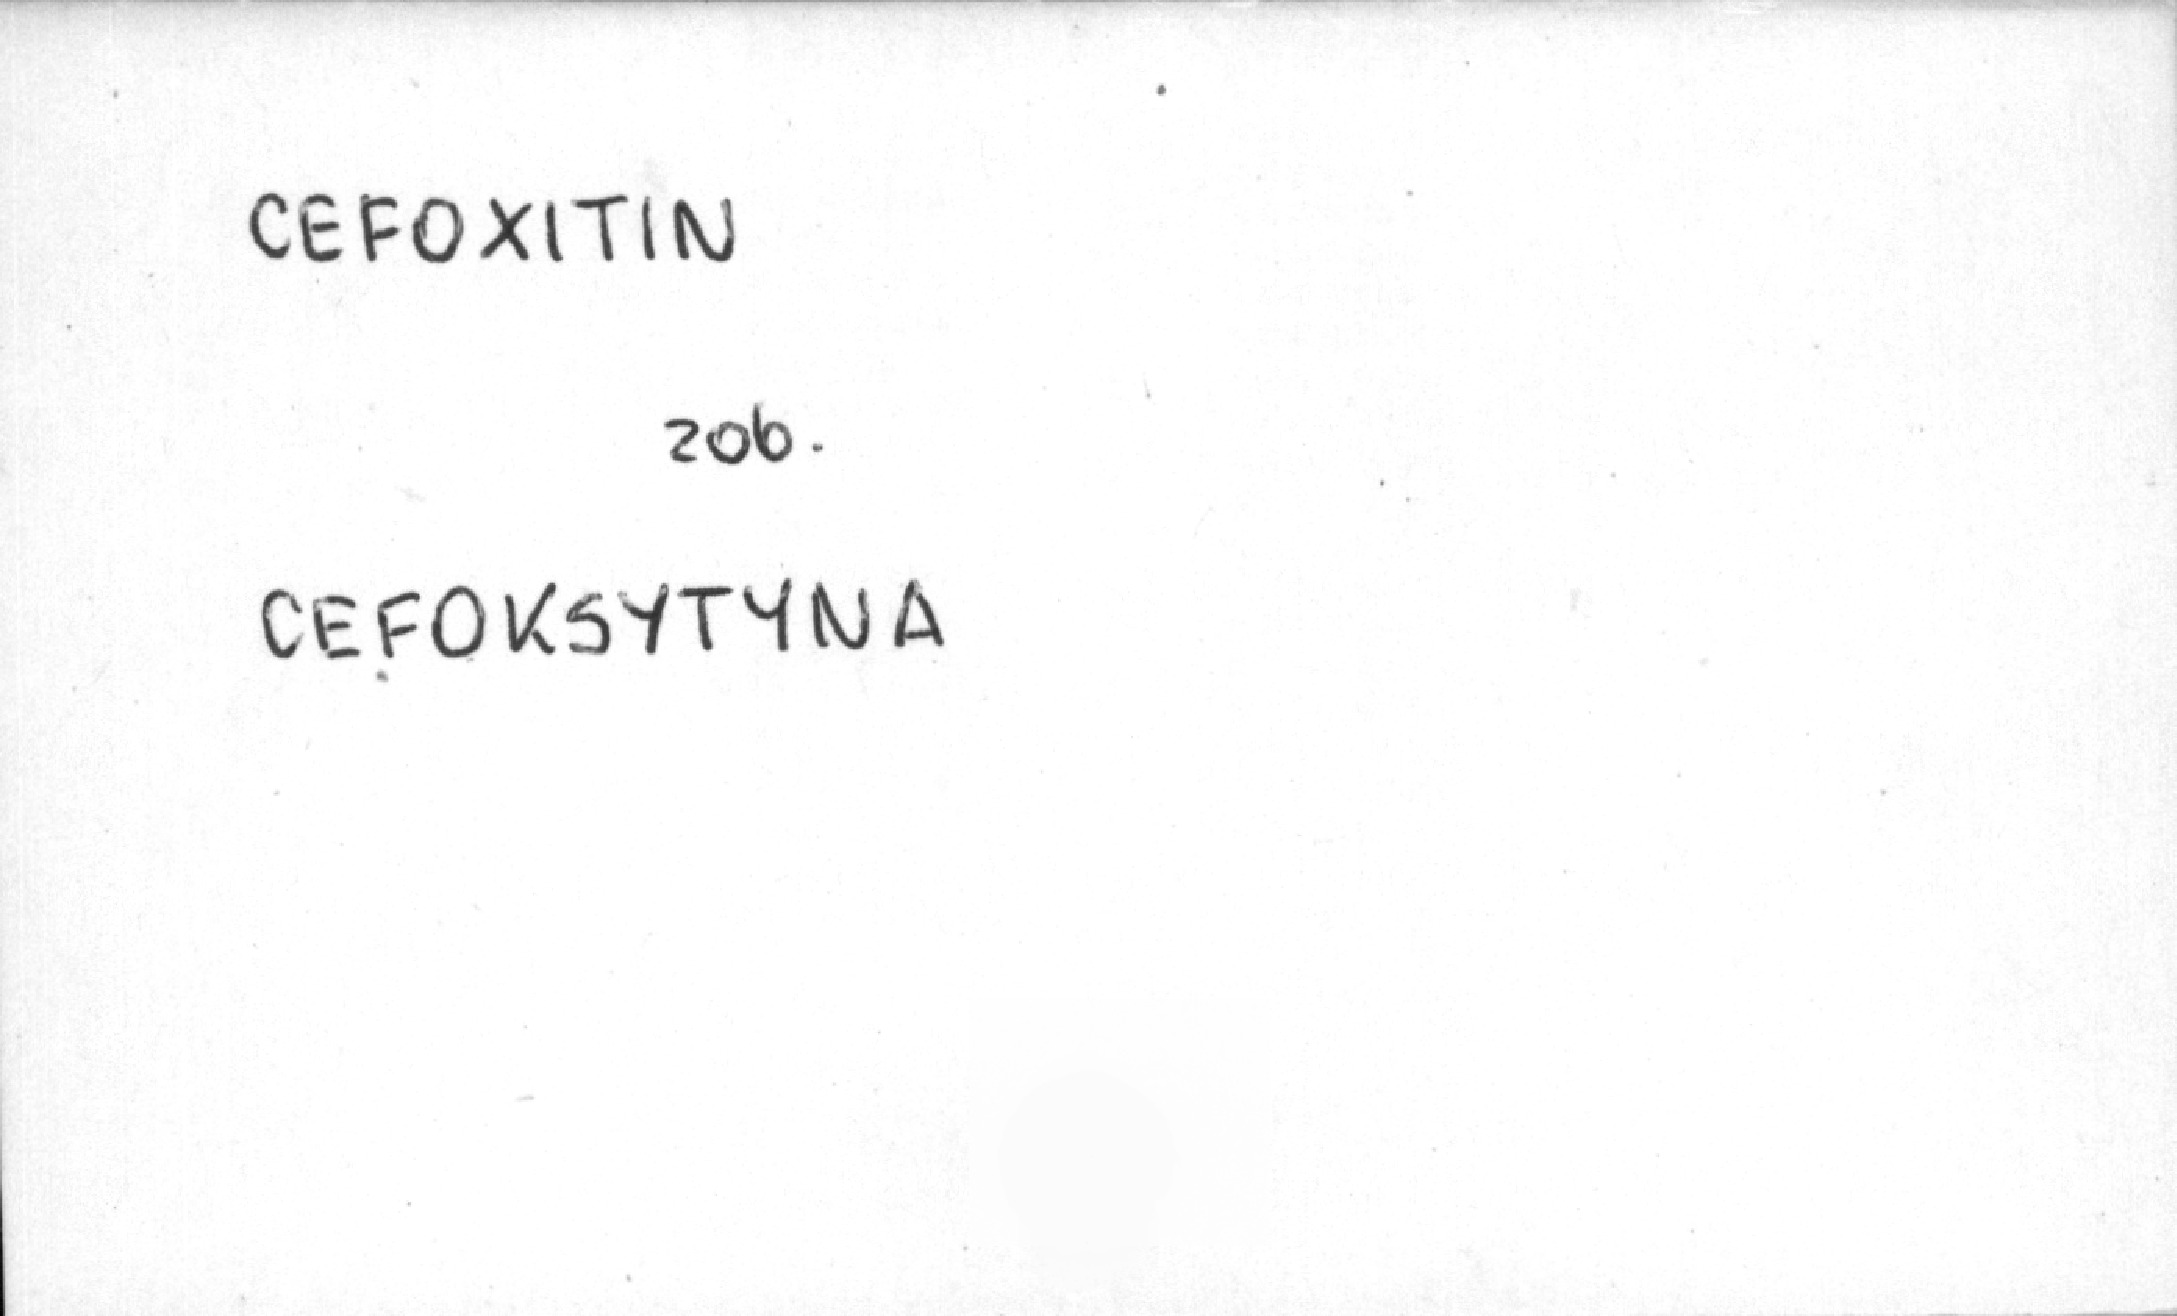 CEFOXITIN
zob.
CEFOKSYTYNA